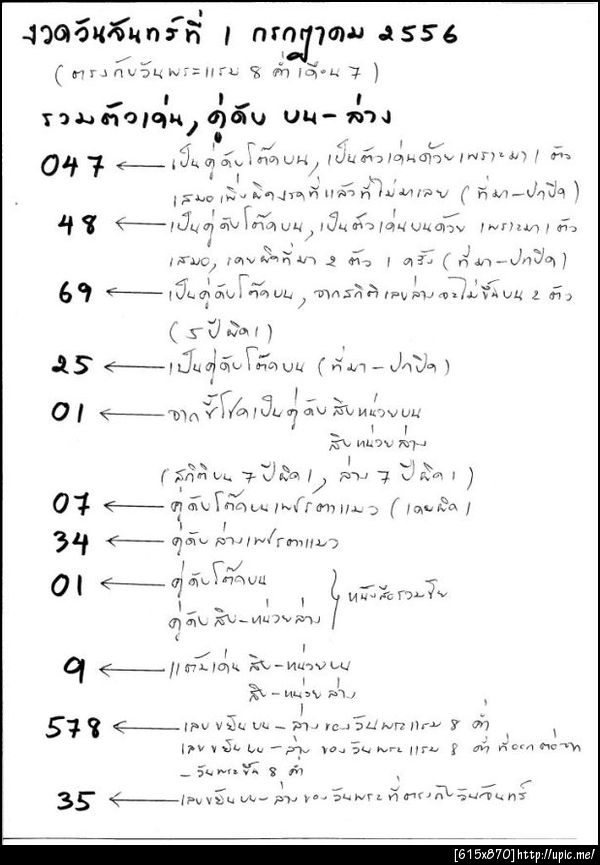 งวดวันจันทร์ที่ 1 กรกฎาคม 2556
(ตรงกับวันพระแรม 8 ค่ำเดือน 7)
รวมตัวเด่น, คู่ดับ บน-ล่าง
047 ← เป็นคู่ดับโต๊ดบน, เป็นตัวเด่นด้วยเพราะมา 1 ตัว
เสมอเพิ่งผิดงวดที่แล้วที่ไม่มาเลย (ที่มา-ปกปิด)
48 ← เป็นคู่ดับโต๊ดบน, เป็นตัวเด่นบนด้วย เพราะมา 1 ตัว
เสมอ, เคยผิดที่มา 2 ตัว 1 ครั้ง (ที่มา-ปกปิด)
69 ← เป็นคู่ดับโต๊ดบน, จากสถิติเลขล่างจะไม่ขึ้นบน 2 ตัว
(5 ปีผิด 1)
25 ← เป็นคู่ดับโต๊ดบน (ที่มา-ปกปิด)
01 ← จากชี้โชคเป็นคู่ดับ สิบหน่วยบน
สิบหน่วยล่าง
(สถิติบน 7 ปีผิด 1, ล่าง 7 ปีผิด 1)
07 ← คู่ดับโต๊ดบนเพชรตาแมว (เคยผิด 1
34 ← คู่ดับล่างเพชรตาแมว
01 ← คู่ดับโต๊ดบน
คู่ดับ สิบ-หน่วยล่าง } หนังสือรวมชัย
9 ← แต้มเด่น สิบ-หน่วยบน
สิบ-หน่วยล่าง
578 ← เลขขยันบน-ล่างของวันพระแรม 8 ค่ำ
เลขขยันบน-ล่าง ของวันพระแรม 8 ค่ำ ที่ออกต่อจาก
- วันพระขึ้น 8 ค่ำ
35 ← เลขขยันบน-ล่างของวันพระที่ตรงกับวันจันทร์
[615x870]http://upic.me/